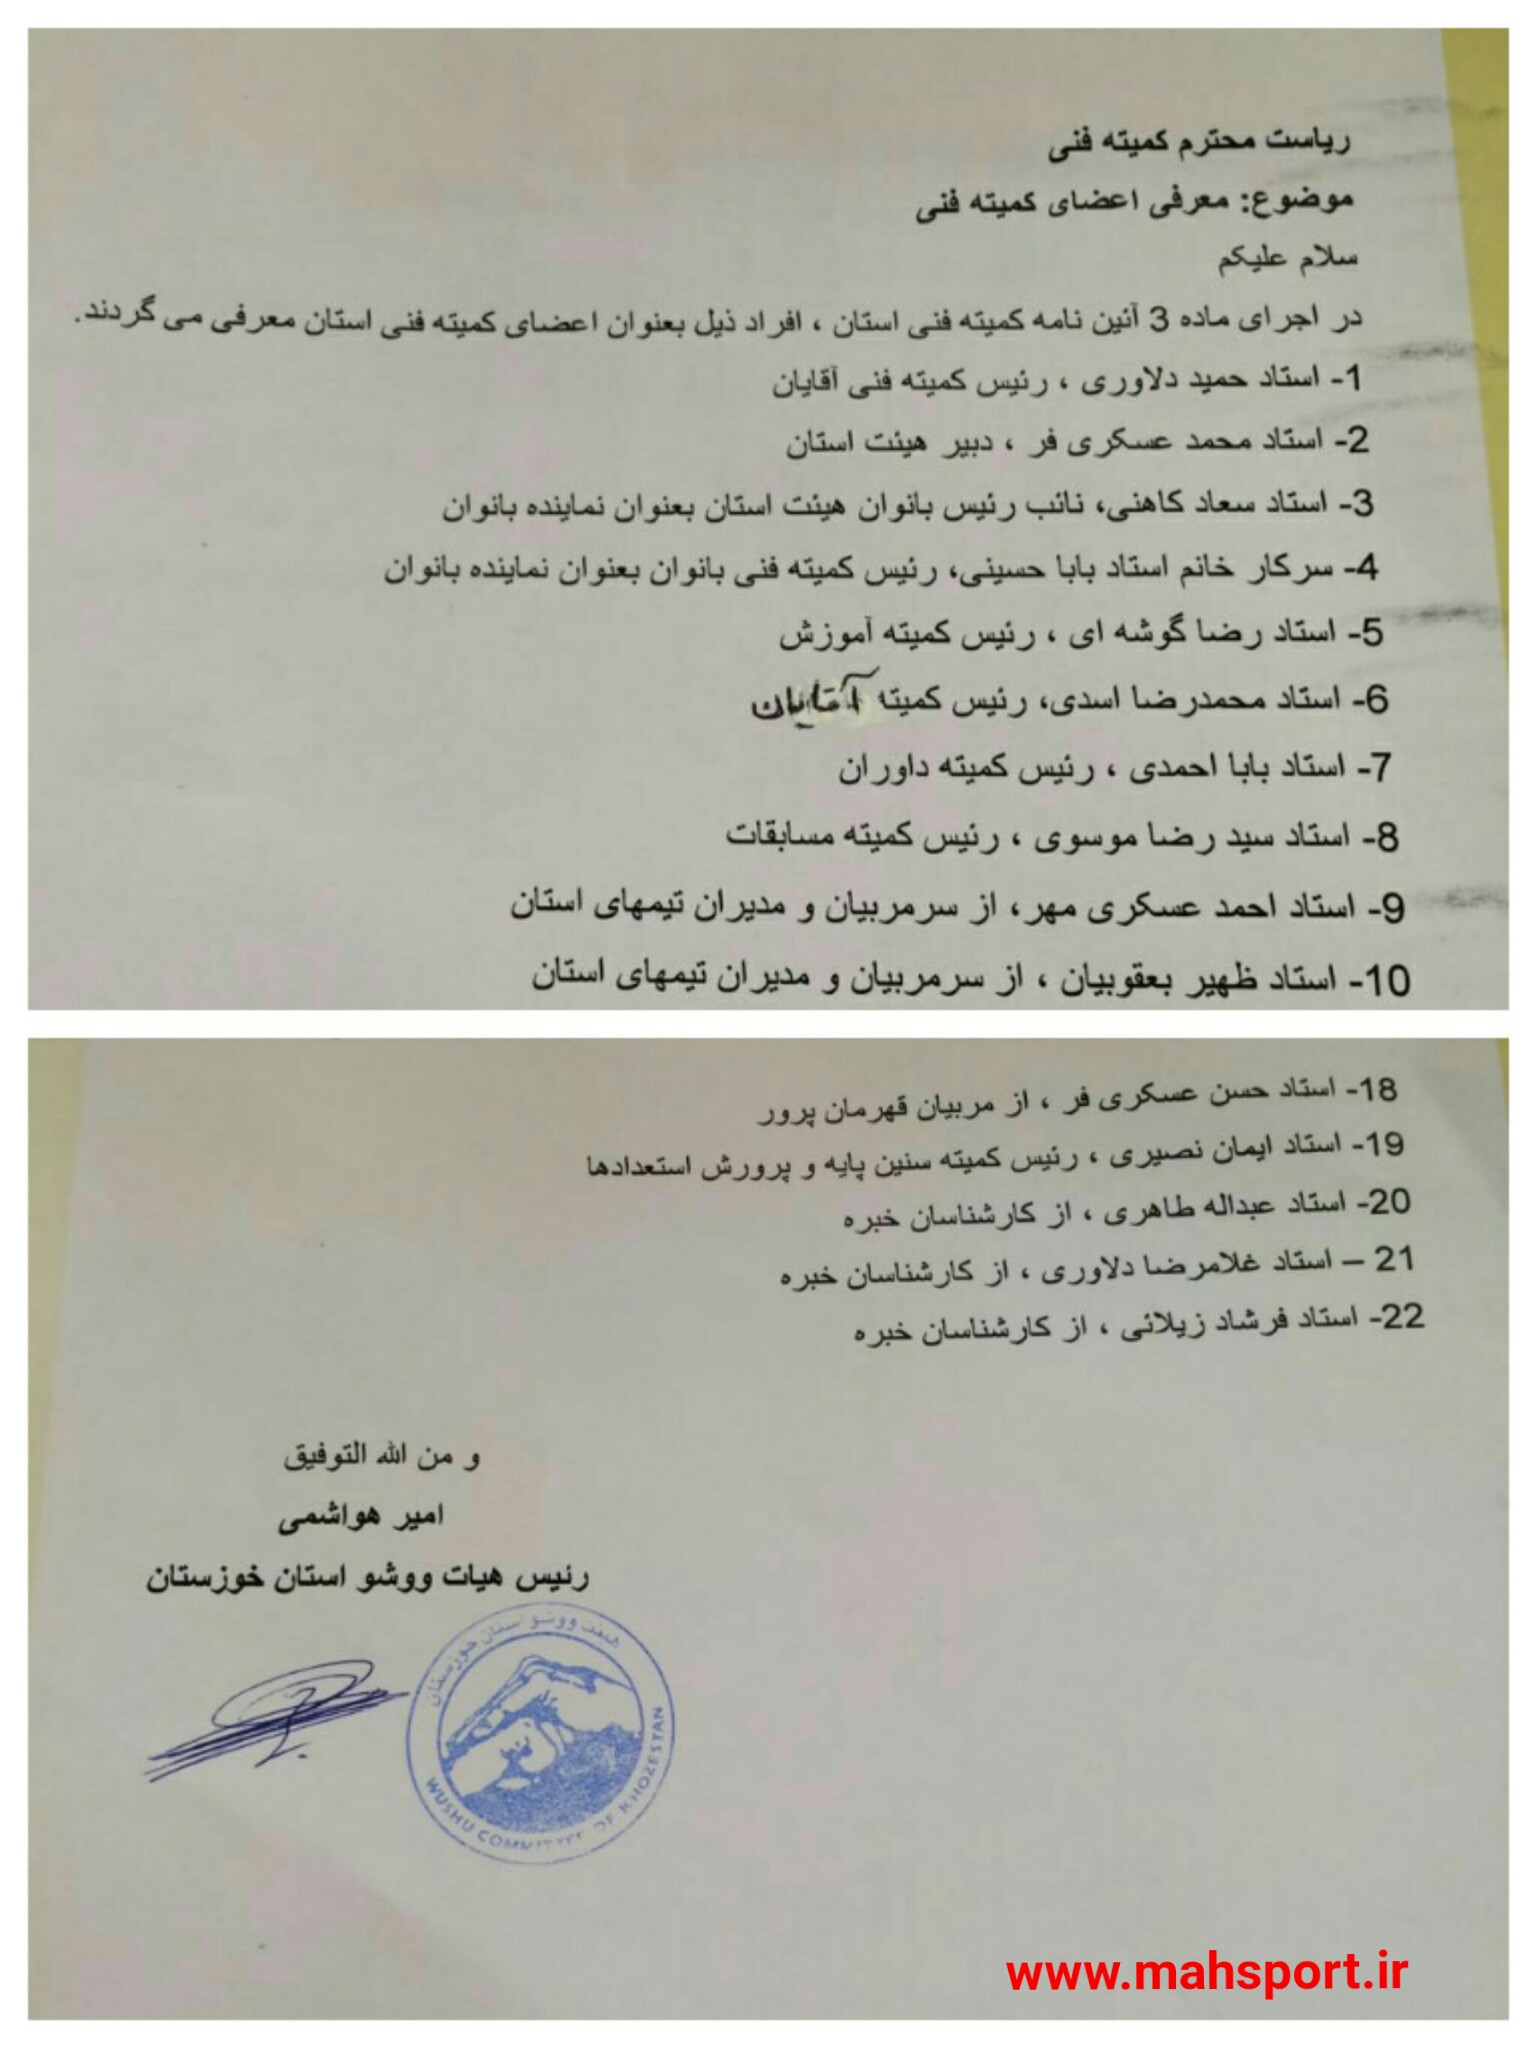 ریاست محترم کمیته فنی
موضوع: معرفی اعضای کمیته فنی
سلام علیکم
در اجرای ماده 3 آئین نامه کمیته فنی استان ، افراد ذیل بعنوان اعضای کمیته فنی استان معرفی می گردند.
1- استاد حمید دلاوری ، رئیس کمیته فنی آقایان
2- استاد محمد عسکری فر ، دبیر هیئت استان
3- استاد سعاد کاهنی، نائب رئیس بانوان هیئت استان بعنوان نماینده بانوان
4- سرکار خانم استاد بابا حسینی، رئیس کمیته فنی بانوان بعنوان نماینده بانوان
5- استاد رضا گوشه ای ، رئیس کمیته آموزش
6- استاد محمدرضا اسدی، رئیس کمیته آقایان
7- استاد بابا احمدی ، رئیس کمیته داوران
8- استاد سید رضا موسوی ، رئیس کمیته مسابقات
9- استاد احمد عسکری مهر، از سرمربیان و مدیران تیمهای استان
10- استاد ظهیر یعقوبیان ، از سرمربیان و مدیران تیمهای استان
18- استاد حسن عسکری فر ، از مربیان قهرمان پرور
19- استاد ایمان نصیری ، رئیس کمیته سنین پایه و پرورش استعدادها
20- استاد عبداله طاهری ، از کارشناسان خبره
21 – استاد غلامرضا دلاوری ، از کارشناسان خبره
22- استاد فرشاد زیلائی ، از کارشناسان خبره
و من الله التوفیق
امیر هواشمی
رئیس هیات ووشو استان خوزستان
هیئت ووشو استان خوزستان
WUSHU COMMITTEE OF KHOZESTAN
www.mahsport.ir